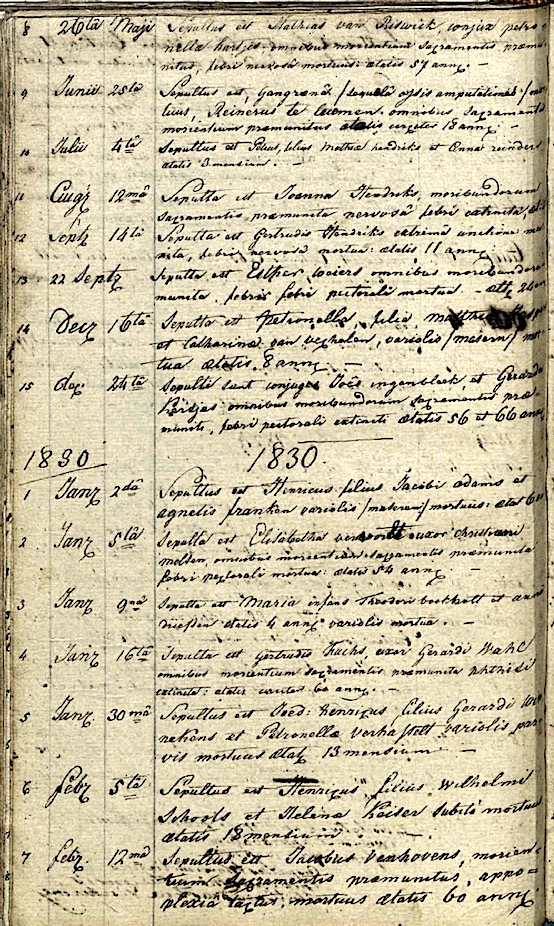 8 26ta Maji Sepultus est Mathias van Ruswick, conjux petro
nella hartjes omnibus morientium sacramentis præmu
nitus, febri nervosâ mortuus: ætatis 57 annꝫ. —
9 Junii 25ta Sepultus est, gangrænâ /sequelâ ossis amputationis/ mor
tuus, Reinerus te laemen omnibus sacramentis
morientium præmunitus ætatis circiter 18 annꝫ —
10 Julii 4ta Sepultus est Petrus, filius Mathiæ hendriks et Anna reinders
ætatis 3 mensium. —
11 Augꝫ 12mâ Sepulta est Joanna Hendriks, moribundorum
sacramentis præmunita nervosâ febri extincta,
12 Septꝫ 14ta Sepulta est Gertrudis Hendriks extremâ unctione mu
nita, febri nervosâ mortua: ætatis 11 annꝫ
13 22 Septꝫ Sepulta est Esther omnibus moribundorum
munita, febri pectorali mortua —
14 Decꝫ 16ta Sepulta est Petronella, filia Matthiæ
et Catharinæ van veghelen, variolis /masern/ mor
tua ætatis 8 annꝫ —
15 dec. 24ta Sepulti sunt conjuges Joës ingenbleek et Gerarda
hartjes omnibus moribundorum sacramentis præ-
muniti, febri pectorali extincti ætatis 56 et 66 annꝫ
1830 1830.
1 Janꝫ 2da Sepultus est Henricus filius Jacobi adams et
agnetis franken variolis /masern/ mortuus: ætat
2 Janꝫ 5ta Sepulta est Elisabetha uxor Christiani
molden, omnibus morientium sacramentis præmunita
febri pectorali mortua: ætatis 54 annꝫ —
3 Janꝫ 9na Sepulta est Maria infans Theodori bockholt et
driessen ætatis 4 annꝫ variolis mortua. —
4 Janꝫ 16ta Sepulta est gertrudis Fuchs, uxor Gerardi Wahl
omnibus morientium sacramentis præmunita phthisi
extincta: ætatis circiter 60 annꝫ. —
5 Janꝫ. 30ma Sepultus est Joës: henricus, filius Gerardi
nekens et Petronellæ verhasselt variolis par
vis mortuus ætat. 13 mensium —
6 febꝫ 5ta Sepultus est Henricus, filius Wilhelmi
Schoots et Helena Kaiser subito mortuus
ætatis 18 mensium. —
7 febꝫ. 12mâ Sepultus est Jacobus vanhovens, morien-
tium sacramentis præmunitus, appo-
plexiâ tactus, mortuus ætatis 60 annꝫ.